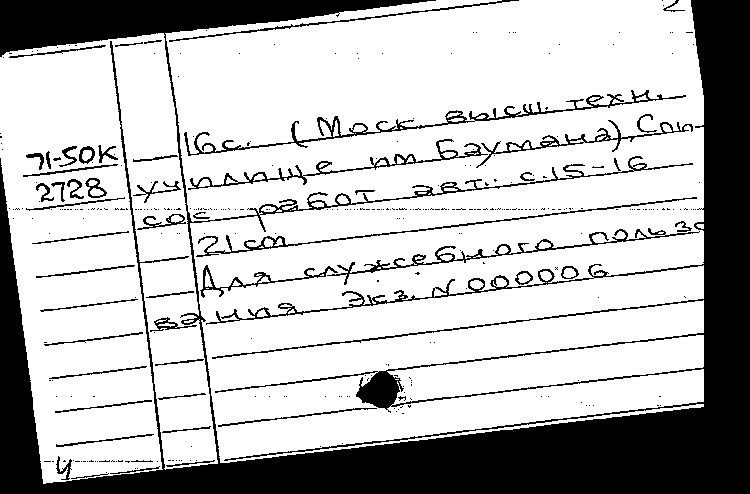 2
16с. (Моск. высш. техн.
71-50К
училище им Баумана), Спи-
2728
сок работ авт.: с.15-16
21cm
Для служебного пользо
вания Экз. N 000006
4